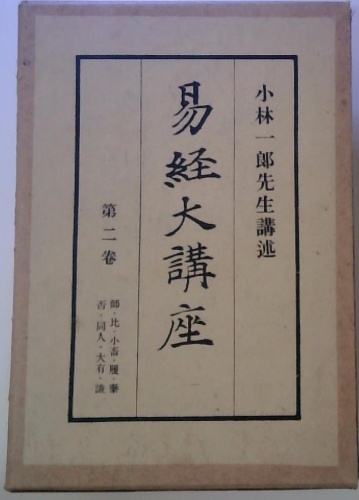 小林一郎先生講述
易経大講座
第二卷
師・比・小畜・履・泰
否・同人・大有・謙